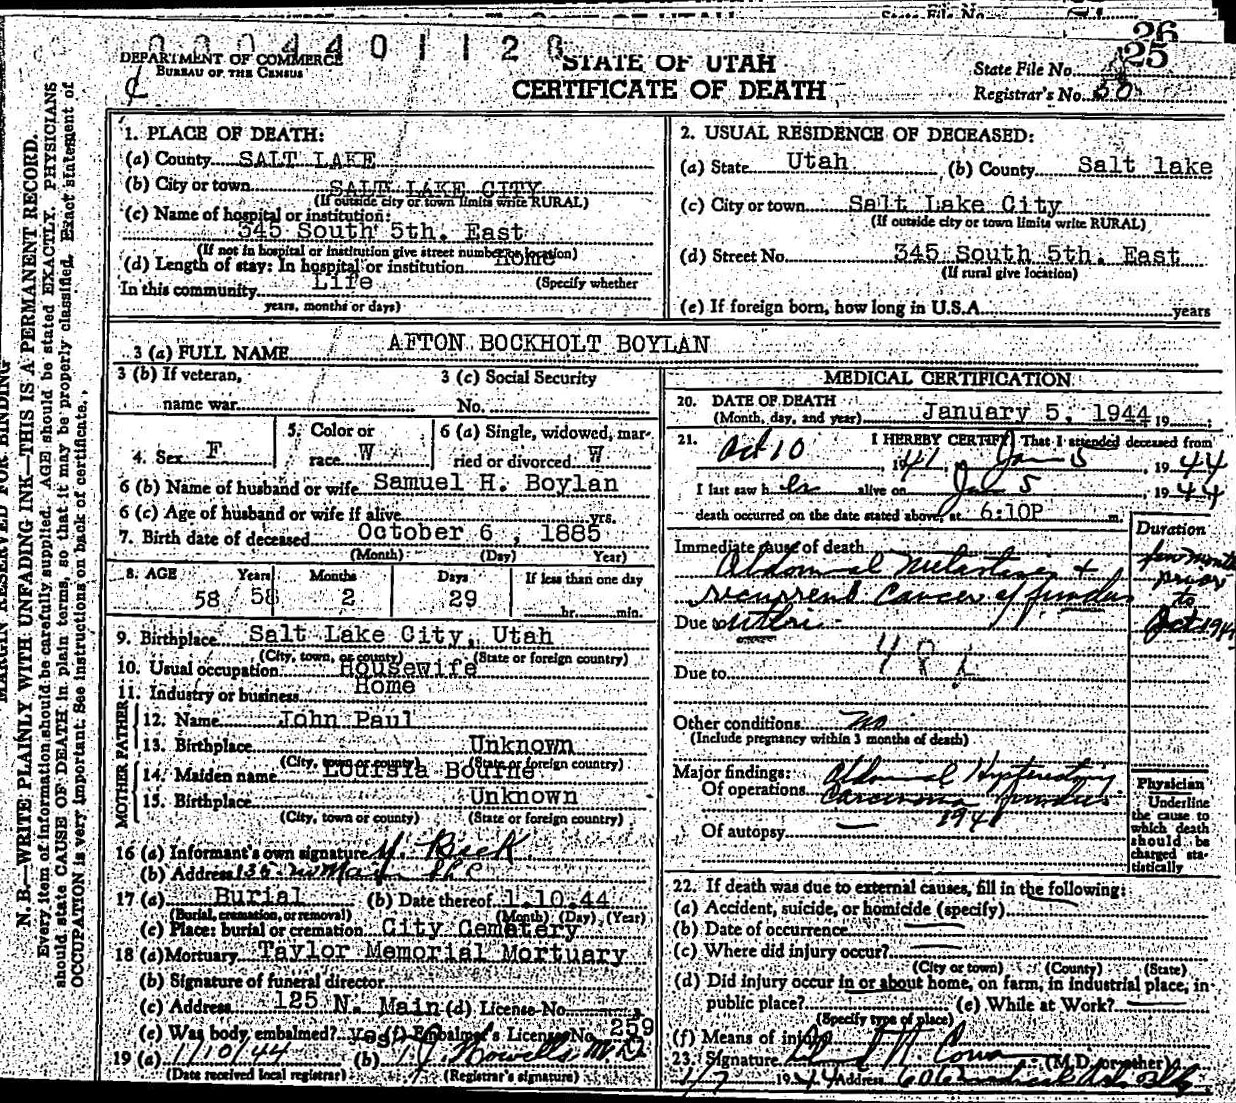 0 0 0 4 4 0 1 1 2 8
DEPARTMENT OF COMMERCE
BUREAU OF THE CENSUS
STATE OF UTAH
CERTIFICATE OF DEATH
State File No. 25
26
Registrar's No.
MARGIN RESERVED FOR BINDING
N. B.—WRITE PLAINLY WITH UNFADING INK—THIS IS A PERMANENT RECORD.
Every item of information should be carefully supplied. AGE should be stated EXACTLY. PHYSICIANS
should state CAUSE OF DEATH in plain terms, so that it may be properly classified. Exact statement of
OCCUPATION is very important. See instructions on back of certificate.
1. PLACE OF DEATH:
(a) County SALT LAKE
(b) City or town SALT LAKE CITY
(If outside city or town limits write RURAL)
(c) Name of hospital or institution:
345 South 5th. East
(If not in hospital or institution give street number or location)
(d) Length of stay: In hospital or institution Home
(Specify whether
In this community Life
years, months or days)
2. USUAL RESIDENCE OF DECEASED:
(a) State Utah (b) County Salt lake
(c) City or town Salt Lake City
(If outside city or town limits write RURAL)
(d) Street No. 345 South 5th. East
(If rural give location)
(e) If foreign born, how long in U.S.A. years
3 (a) FULL NAME AFTON BOCKHOLT BOYLAN
3 (b) If veteran,
name war
3 (c) Social Security
No.
4. Sex F
5. Color or
race W
6 (a) Single, widowed, mar-
ried or divorced W
6 (b) Name of husband or wife Samuel H. Boylan
6 (c) Age of husband or wife if alive yrs.
7. Birth date of deceased October 6, 1885
(Month) (Day) Year)
8. AGE Years Months Days If less than one day
58 58 2 29 hr. min.
9. Birthplace Salt Lake City, Utah
(City, town, or county) (State or foreign country)
10. Usual occupation Housewife
11. Industry or business Home
FATHER
12. Name John Paul
13. Birthplace Unknown
(City, town or county) (State or foreign country)
MOTHER
14. Maiden name Louisia Bourne
15. Birthplace Unknown
(City, town or county) (State or foreign country)
16 (a) Informant's own signature
(b) Address
17 (a) Burial (b) Date thereof 1.10.44
(Burial, cremation, or removal) (Month) (Day) (Year)
(c) Place: burial or cremation City Cemetery
18 (a) Mortuary Taylor Memorial Mortuary
(b) Signature of funeral director
(c) Address 125 N. Main (d) License No.
(e) Was body embalmed? yes (f) Embalmer's License No. 259
19 (a) 1/10/44 (b)
(Date received local registrar) (Registrar's signature)
MEDICAL CERTIFICATION
20. DATE OF DEATH
(Month, day, and year) January 5, 1944 19
21. I HEREBY CERTIFY, That I attended deceased from
Oct 10, 1941 Jan 5, 1944
I last saw her alive on Jan 5, 1944
death occurred on the date stated above, at 6:10P m.
Duration
Immediate cause of death
Abdominal Metastases +
recurrent Cancer of fundus
Due to uteri
few months
prior
to
Oct 1941
48
Due to
Other conditions no
(Include pregnancy within 3 months of death)
Major findings:
Of operations Abdominal Hysterectomy
Carcinoma fundus
1941
Of autopsy —
Physician
Underline
the cause to
which death
should be
charged sta-
tistically
22. If death was due to external causes, fill in the following:
(a) Accident, suicide, or homicide (specify)
(b) Date of occurrence
(c) Where did injury occur?
(City or town) (County) (State)
(d) Did injury occur in or about home, on farm, in industrial place, in
public place? (e) While at Work?
(Specify type of place)
(f) Means of injury
23. Signature (M.D. or other)
1/7 1944 Address